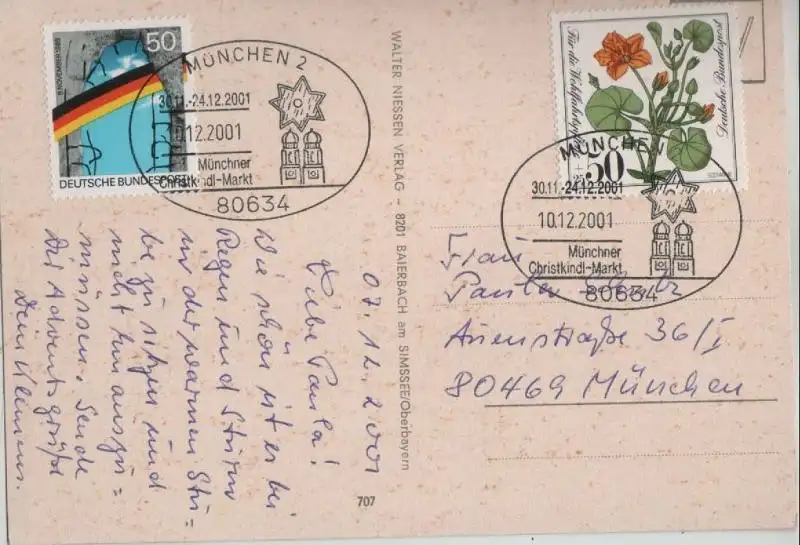 50
9. NOVEMBER 1989
DEUTSCHE BUNDESPOST
MÜNCHEN 2
30.11.-24.12.2001
10.12.2001
Münchner
Christkindl-Markt
80634
Für die Wohlfahrtspflege
50
+ 25
Deutsche Bundespost
MÜNCHEN
30.11.-24.12.2001
10.12.2001
Münchner
Christkindl-Markt
80634
WALTER NIESSEN VERLAG – 8201 BAIERBACH am SIMSSEE/Oberbayern
707
07.12.2001
Liebe Paula!
Wie schön ist es bei
Regen und Sturm
in der warmen Stu=
be zu sitzen und
nicht hinauszu=
müssen. Sende
Dir Adventsgrüße
Dein Klemens.
Frau
Auenstraße 36/I
80469 München